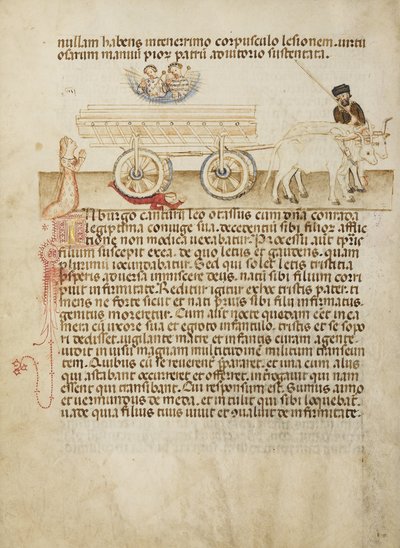 nullam habens in tenerrimo corpusculo lesionem. uirtu
osarum manuum pior patrum aduitorio sustentata.
In burgo canturii leo otassus cum dna contada
legiptima coniuge sua. decedentium sibi filior afflic
tione non modica uexabatur. Processu aut tpris
filium suscepit ex ea. de quo letus et gaudens. quam
plurimum iocundabatur. Sed qui solet letis tristia
psperis aduersa inmiscere deus. nati sibi filium corri
puit infirmitate. Redditur igitur ex hoc tristis pater. ti
mens ne forte sicut et nati prius sibi filii infirmatus
genitus moreretur. Cum aut nocte quadam eet in ca
mera cu uxore sua et egroto infantulo. tristis et se sopo
ri dedisset. uigilante matre et infantis curam agente.
uidit in uisu magnam multitudinem militum transeun
tem. Quibus cu se reuerent pararet. et una cum aliis
qui astabant occurreret et offeret. inrogauit qui nam
essent qui transibant. Cui responsum est. Sumus aimo
et uermundus de meda. et intulit qui sibi loquebat.
uade quia filius tuus uiuit et conualuit de infirmitate.